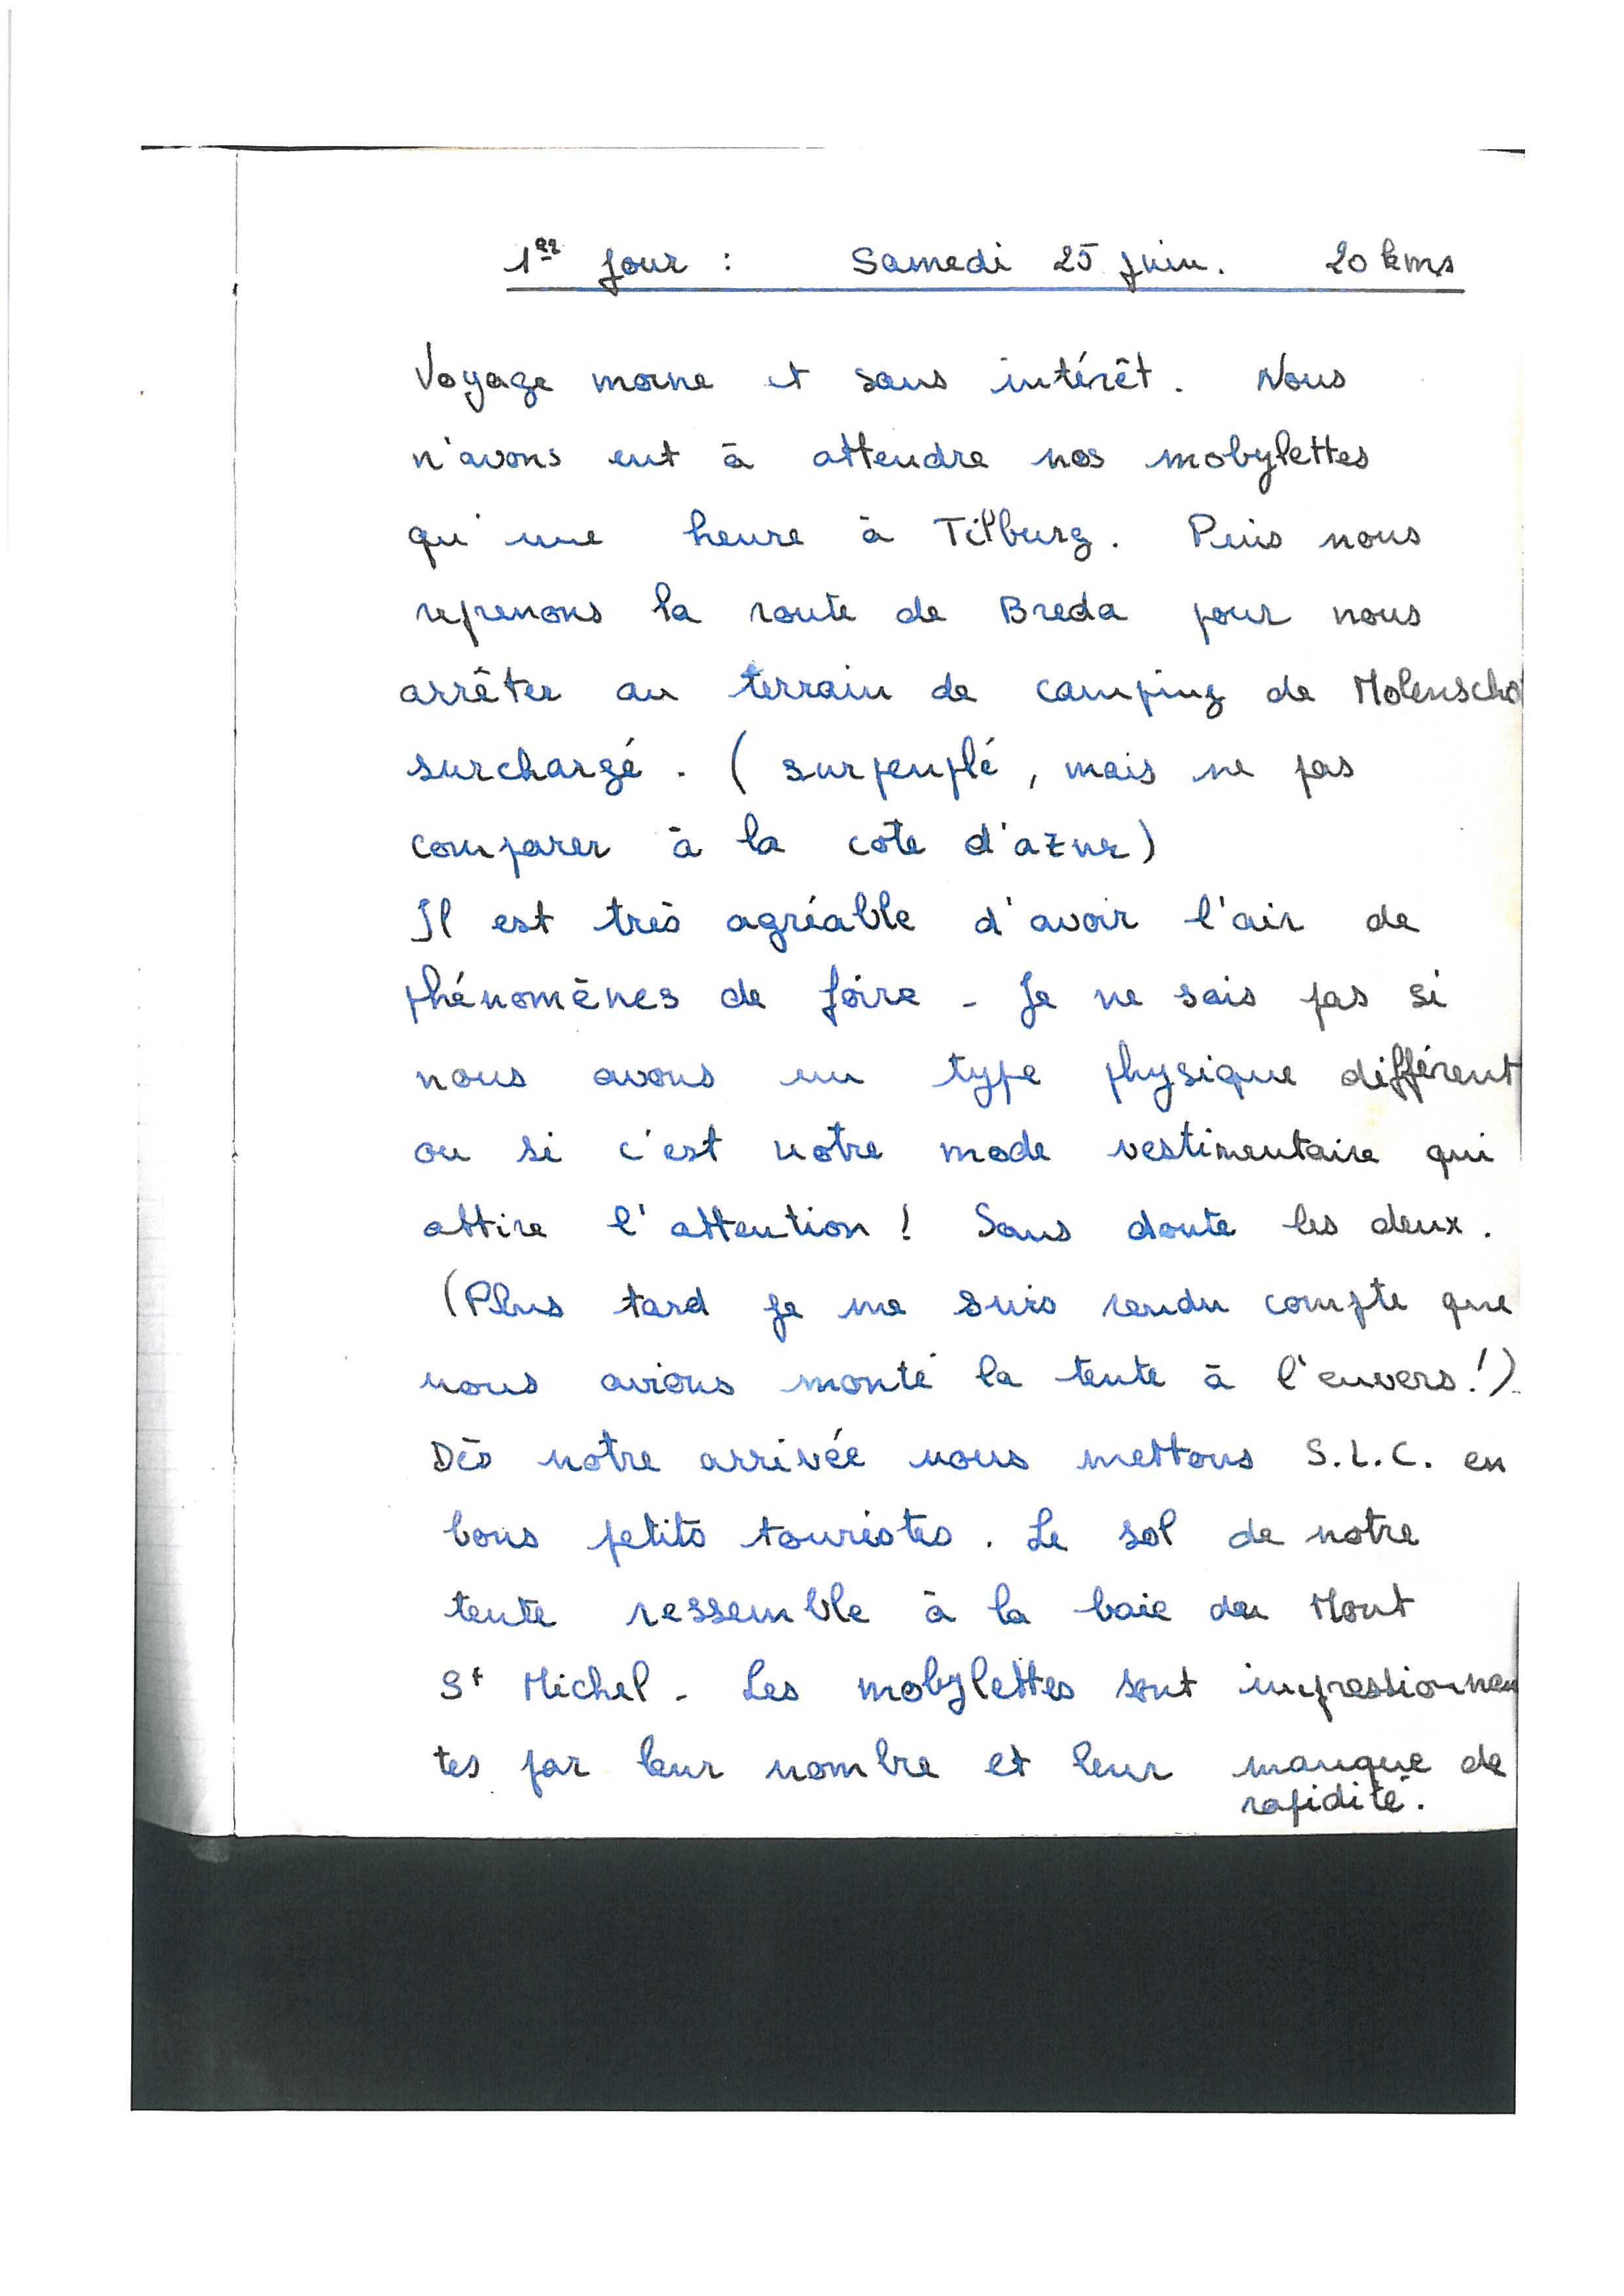 1er jour : Samedi 25 juin. 20 kms
Voyage morne et sans intérêt. Nous
n'avons eut à attendre nos mobylettes
qu'une heure à Tilburg. Puis nous
reprenons la route de Breda pour nous
arrêter au terrain de camping de Molenscho
surchargé. (surpeuplé, mais ne pas
comparer à la côte d'azur)
Il est très agréable d'avoir l'air de
phénomènes de foire - Je ne sais pas si
nous avons un type physique différent
ou si c'est notre mode vestimentaire qui
attire l'attention ! Sans doute les deux.
(Plus tard je me suis rendu compte que
nous avions monté la tente à l'envers !)
Dès notre arrivée nous mettons S.L.C. en
bons petits touristes. Le sol de notre
tente ressemble à la baie du Mont
St Michel - Les mobylettes sont impressionnan
tes par leur nombre et leur manque de
rapidité.